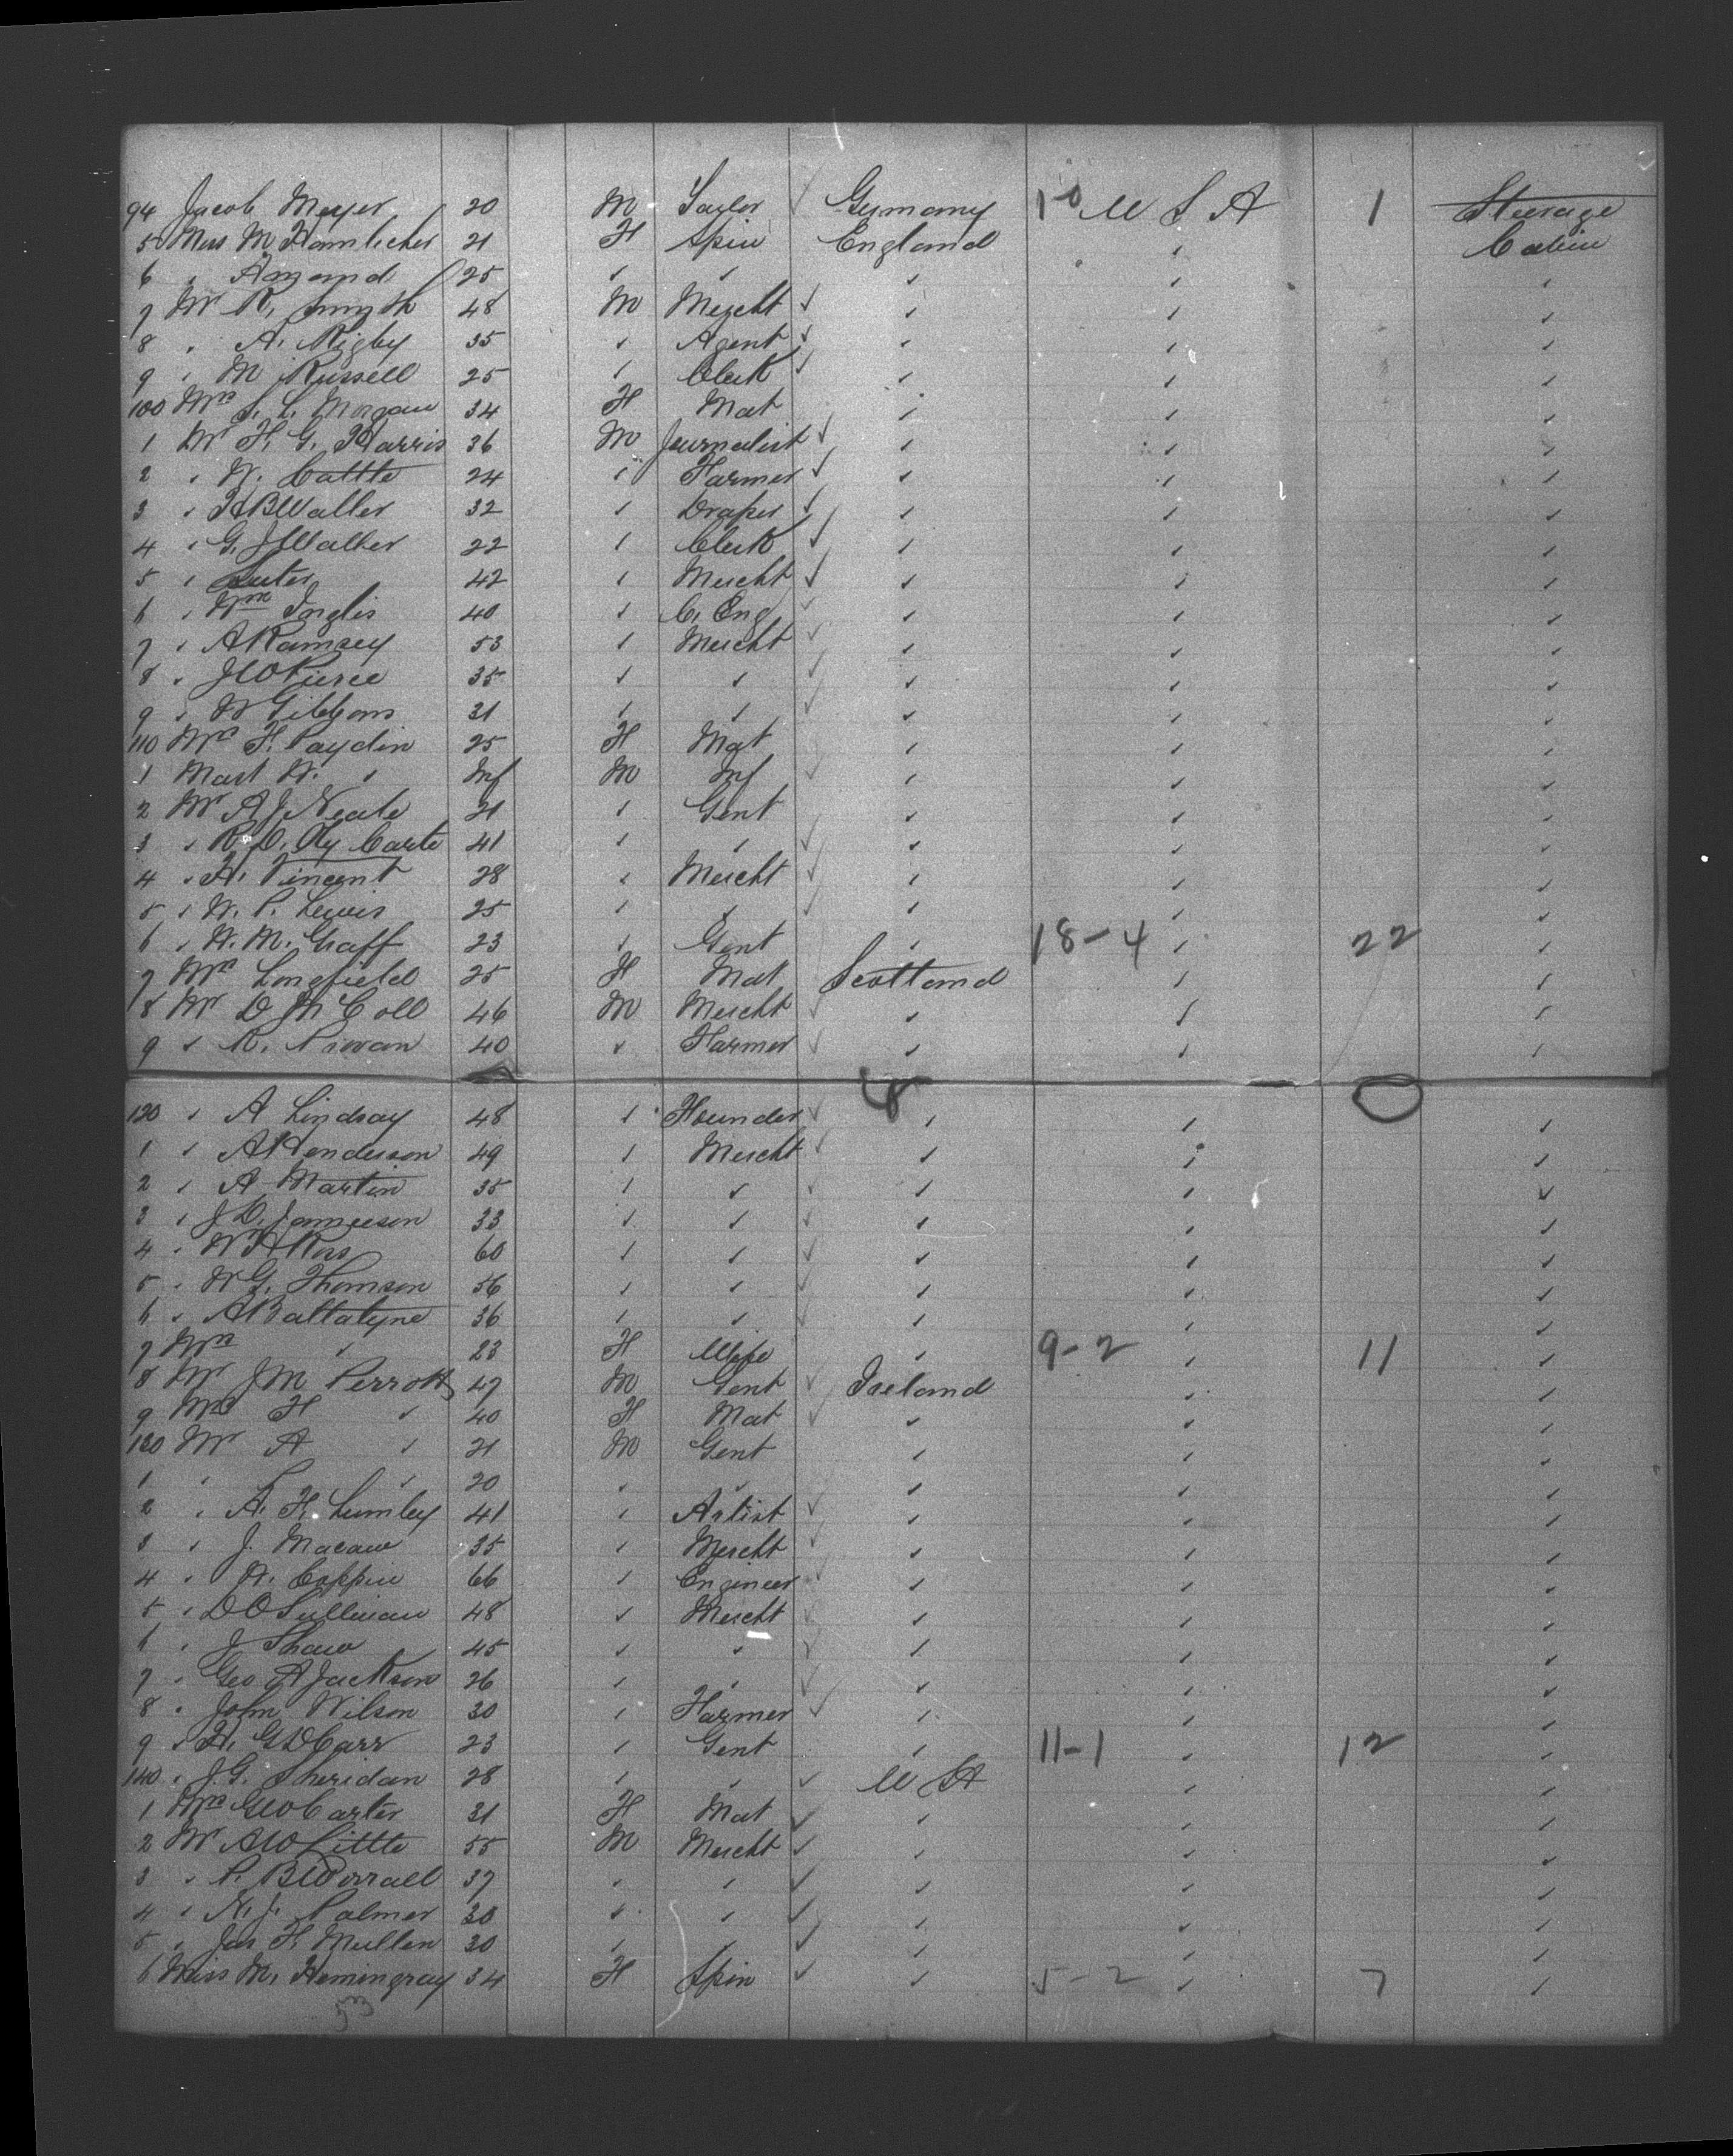 94 Jacob Meyer 20 M Taylor ✓ Germany 1-0 U S A 1 Steerage
5 Miss M 21 F Spin England ✓ Cabin
6 " 25 ✓ ✓ ✓ ✓ ✓
7 Mr R. Smyth 48 M Mercht ✓ ✓ ✓ ✓
8 " A. Rigby 35 ✓ Agent ✓ ✓ ✓ ✓
9 " M Russell 25 ✓ Clerk ✓ ✓ ✓ ✓
100 Mrs S. L. Morgan 34 F Mat ✓ ✓ ✓
1 Mr H. G. Harris 36 M Journalist ✓ ✓ ✓ ✓
2 " W. Cattle 24 ✓ Farmer ✓ ✓ ✓ ✓
3 " H B Waller 32 ✓ Draper ✓ ✓ ✓ ✓
4 " G. J Walker 22 ✓ Clerk ✓ ✓ ✓ ✓
5 " 42 ✓ Mercht ✓ ✓ ✓ ✓
6 " Wm Inglis 40 ✓ C. Eng ✓ ✓ ✓ ✓
7 " A Ramsey 53 ✓ Mercht ✓ ✓ ✓ ✓
8 " J W Pierce 35 ✓ ✓ ✓ ✓ ✓ ✓
9 " W Gibbons 31 ✓ ✓ ✓ ✓ ✓ ✓
110 Mrs F. Paydin 25 F Mat ✓ ✓ ✓
1 Mast W. " Inf M Inf ✓ ✓ ✓ ✓
2 Mr A J. Neale 21 ✓ Gent ✓ ✓ ✓
3 " R. D. Oly Carte 41 ✓ ✓ ✓ ✓ ✓ ✓
4 " H. Vincent 28 ✓ Mercht ✓ ✓ ✓ ✓
5 " W. P. Lewis 25 ✓ ✓ ✓ ✓ ✓ ✓
6 " W. M. Graff 23 ✓ Gent ✓ 18-4 ✓ 22 ✓
7 Mrs Longfield 25 F Mat Scotland ✓ ✓
8 Mr D McColl 46 M Mercht ✓ ✓ ✓ ✓
9 " R. 40 ✓ Farmer ✓ ✓ ✓ ✓
120 " A Lindsay 48 ✓ Founder ✓ ✓ ✓ ✓
1 " A Henderson 49 ✓ Mercht ✓ ✓ ✓ ✓
2 " A Martin 35 ✓ ✓ ✓ ✓ ✓ ✓
3 " J D. Jameson 33 ✓ ✓ ✓ ✓ ✓ ✓
4 " W H Ross 60 ✓ ✓ ✓ ✓ ✓ ✓
5 " W G. Thomson 56 ✓ ✓ ✓ ✓ ✓ ✓
6 " A Ballatyne 36 ✓ ✓ ✓ ✓ ✓ ✓
7 Mrs " 23 F Wife ✓ 9-2 ✓ 11 ✓
8 Mr J M Perrott 47 M Gent ✓ Ireland ✓ ✓
9 Mrs H " 40 F Mat ✓ ✓ ✓ ✓
130 Mr A " 21 M Gent ✓ ✓ ✓
1 " " 20 ✓ ✓ ✓ ✓ ✓
2 " A. F. Lumley 41 ✓ Artist ✓ ✓ ✓ ✓
3 " J. Macaw 35 ✓ Mercht ✓ ✓ ✓ ✓
4 " W. Coppin 66 ✓ Engineer ✓ ✓ ✓ ✓
5 " D O Sullivan 48 ✓ Mercht ✓ ✓ ✓ ✓
6 " J Shaw 45 ✓ ✓ ✓ ✓ ✓ ✓
7 " Geo A Jackson 26 ✓ ✓ ✓ ✓ ✓ ✓
8 " John Wilson 30 ✓ Farmer ✓ ✓ ✓ ✓
9 " H. G D Carr 23 ✓ Gent ✓ 11-1 ✓ 12 ✓
140 " J. G. Sheridan 28 ✓ ✓ ✓ U S A ✓ ✓
1 Mrs Geo Carter 31 F Mat ✓ ✓ ✓ ✓
2 Mr A W Little 55 M Mercht ✓ ✓ ✓ ✓
3 " P. B Worrall 37 ✓ ✓ ✓ ✓ ✓ ✓
4 " N. J. Palmer 30 ✓ ✓ ✓ ✓ ✓ ✓
5 " Jas F. Mullen 30 ✓ ✓ ✓ ✓ ✓ ✓
6 Miss M. Hemingray 34 F Spin ✓ ✓ 5-2 ✓ 7 ✓
53